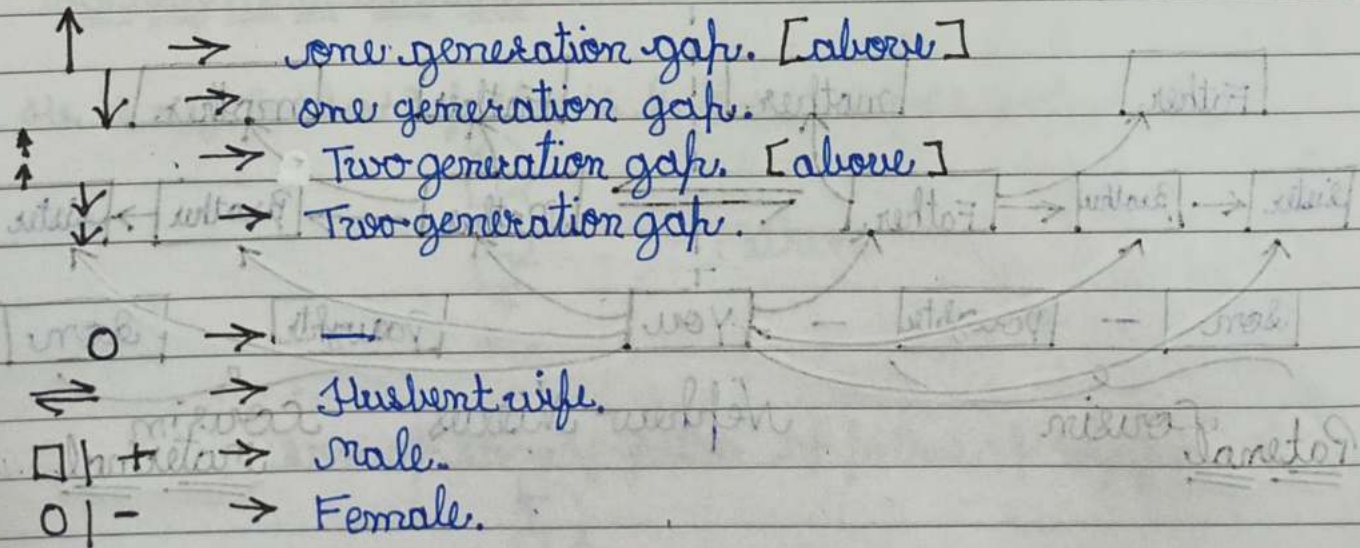 ↑ → one generation gap. [above]
↓ → one generation gap.
↑↑ → Two generation gap. [above]
↓↓ → Two generation gap.
O → —
⇌ → Husbent wife.
□ | + → male.
O | - → Female.